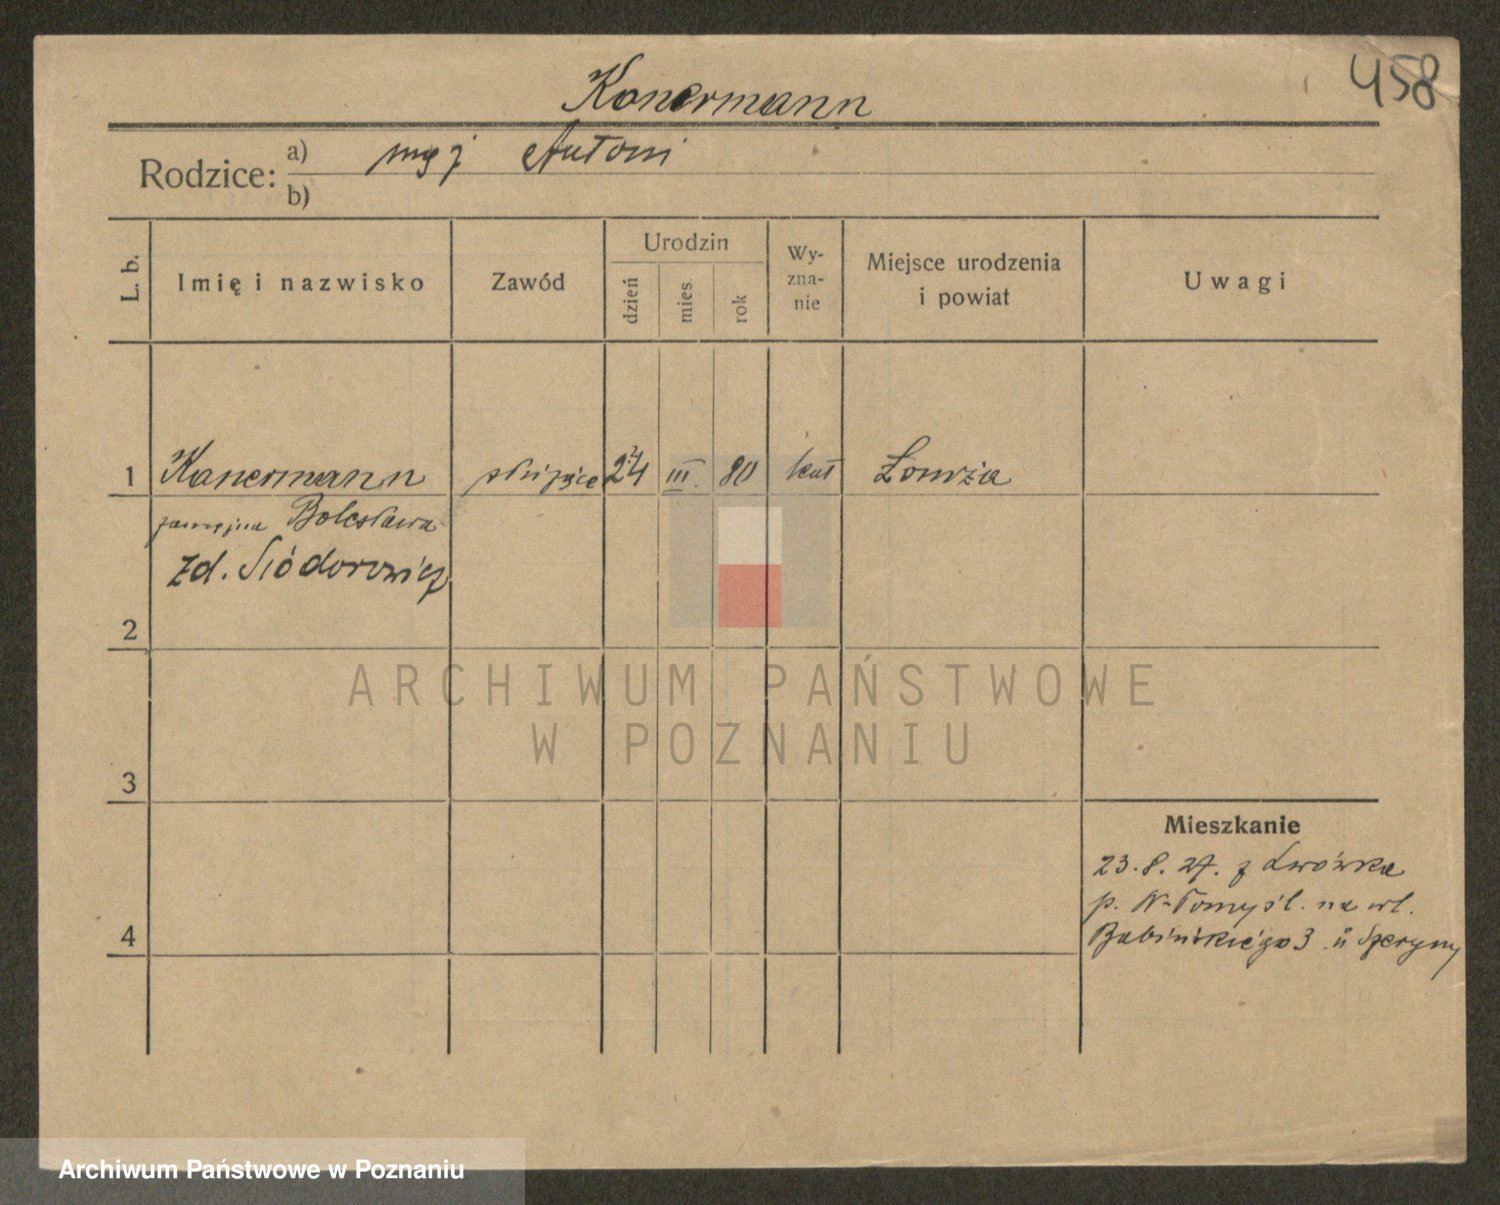 458
Konermann
Rodzice: a) mąż Antoni
b)
L. b.
Imię i nazwisko
Zawód
Urodzin
dzień
mies.
rok
Wy-
zna-
nie
Miejsce urodzenia
i powiat
Uwagi
1 Kanermann służące 24 III. 80 kat Łomża
zamężna Bolesława
zd. Siódorowicz
2
3
4
Mieszkanie
23.8.27. z Lwówka
p. N-Tomyśl. na ul.
3 u
ARCHIWUM PAŃSTWOWE
W POZNANIU
Archiwum Państwowe w Poznaniu